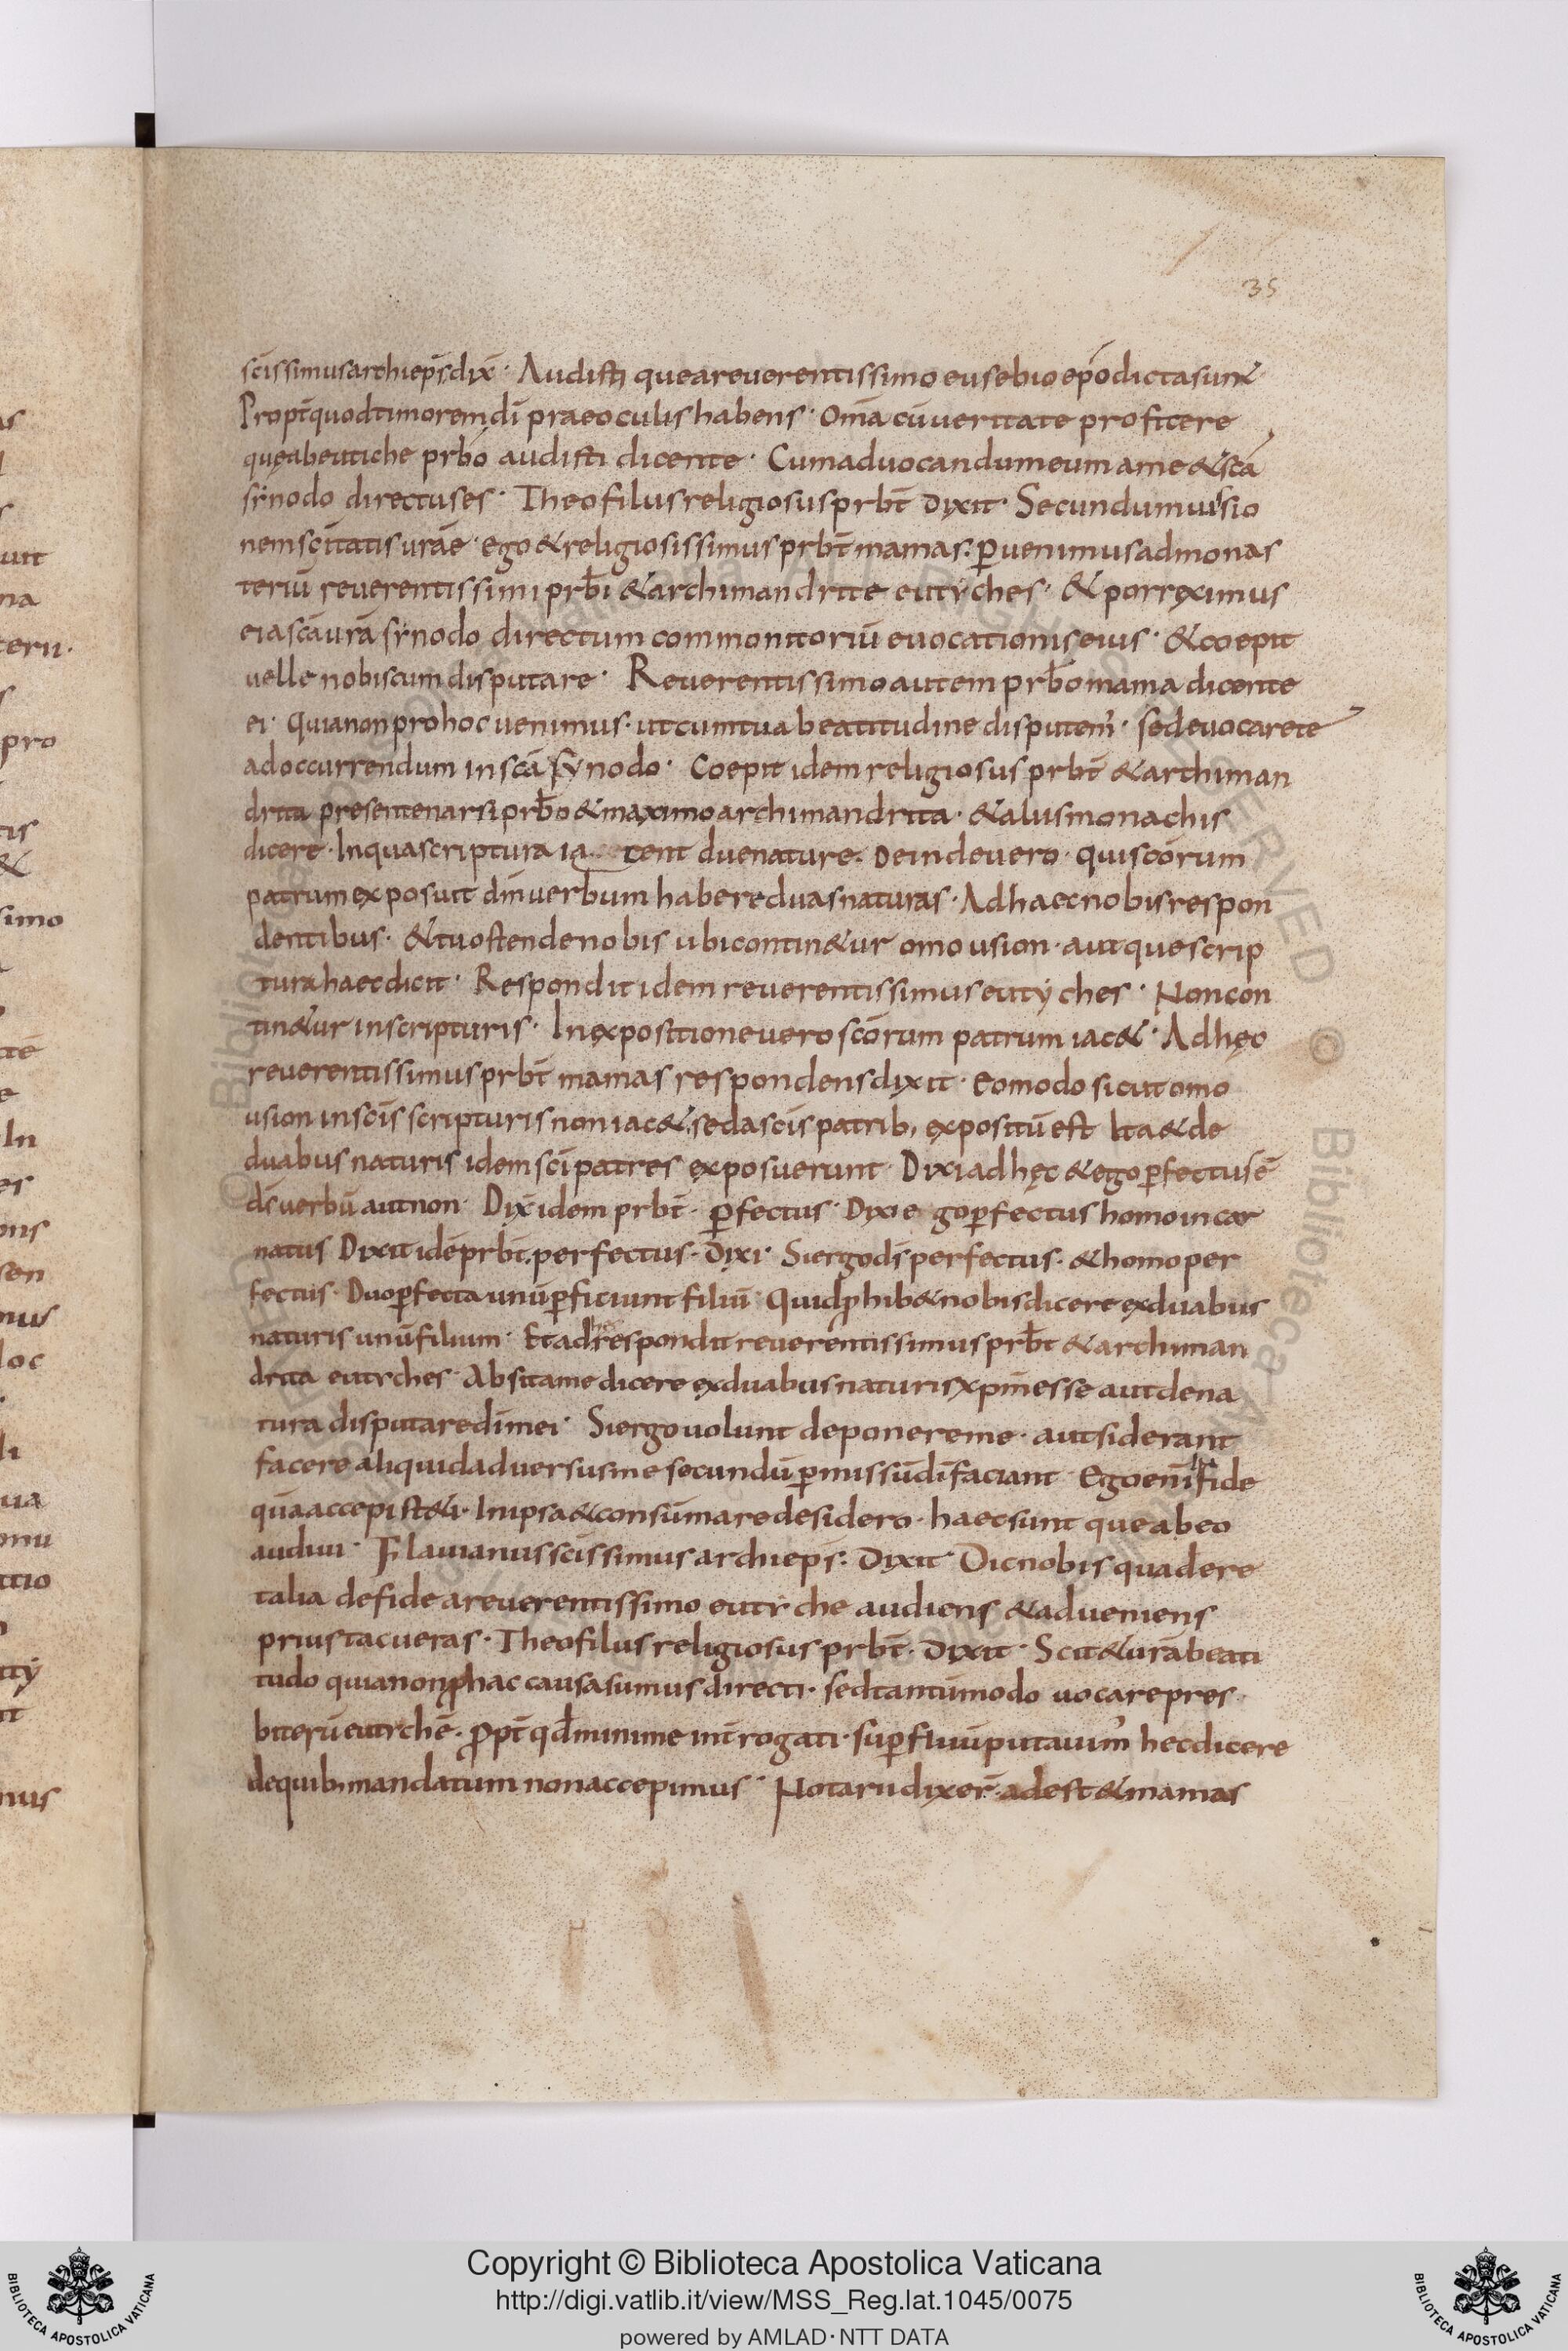 35
scīssimus archiep̄s dix̄· Audisti que a reverentissimo eusebio ep̄o dicta sunt·
Propt̄ quod timorem dī prae oculis habens· Om̄a cū veritate profitere
quęabeutiche prb̄o audisti dicente· Cum advocandum eum a me & scā
synodo directus es· Theofilus religiosus prbt̄ dixit· Secundum iussio
nem scītatis vrāe· ego & religiosissimus prbt̄ mamas: ꝑvenimus ad monas
teriū reverentissimi prb̄i & archimandrite eutyches· & porreximus
ei a scā vrā synodo directum commonitoriū evocationis eius· & coepit
velle nobiscum disputare· Reverentissimo autem prb̄o mama dicente
ei· Quia non pro hoc venimus· ut cum tua beatitudine disputem'· sed evocare te
ad occurrendum in scā synodo· Coepit idem religiosus prbt̄ & archiman
drita presente narsi prb̄o & maximo archimandrita· & aliis monachis
dicere· In qua scriptura ia cent due nature· Deinde vero· quis scōrum
patrum exposuit dm̄ verbum habere duas naturas· Ad haec nobis respon
dentibus· & tu ostende nobis ubi contin&ur omousion· aut que scrip
tura haec dicit· Respondit idem reverentissimus eutyches· Non con
tin&ur in scripturis· In expositione vero scōrum patrum iac&· Ad hęc
reverentissimus prbt̄ mamas respondens dixit· Eo modo sicut omo
usion in scīs scripturis non iac&, sed a scīs patrib; expositū est Ita & de
duabus naturis idem scī patres exposuerunt· Dixi ad hęc & ego ꝑfectus ē
ds̄ verbū aut non· Dix̄ idem prbt̄· ꝑfectus· Dixi ego ꝑfectus homo incar
natus Dixit idē prbt̄. perfectus· Dixi· Si ergo ds̄ perfectus· & homo per
fectus· Duo ꝑfecta unū ꝑficiunt filiū Quid ꝓhib& nobis dicere ex duabus
naturis unū filium· Et ad hęc respondit reverentissimus prbt̄ & archiman
drita eutyches· Absit a me dicere ex duabus naturis xp̄m esse aut de na
tura disputare dī mei· Si ergo volunt deponere me· aut siderant
facere aliquid adversus me secundū ꝑmissū dī faciant Ego enī fide
quā accepi st&i· In ipsa & consūmare desidero· haec sunt que ab eo
audivi· Flavianus scīssimus archiep̄s: Dixit Dic nobis quadere
talia de fide a reverentissimo eutyche audiens & adveniens
prius tacueras· Theofilus religiosus prbt̄· Dixit· Scit & vrā beati
tudo quia non ꝓ hac causa sumus directi· sed tantūmodo vocare pres
biterū eutychē· ꝓpt̄ qđ minime int̄rogati· suꝑfluū putavim' hec dicere
de quib; mandatum non accepimus· Notarii dixer̄· adest & mamas
Copyright © Biblioteca Apostolica Vaticana
http://digi.vatlib.it/view/MSS_Reg.lat.1045/0075
powered by AMLAD·NTT DATA